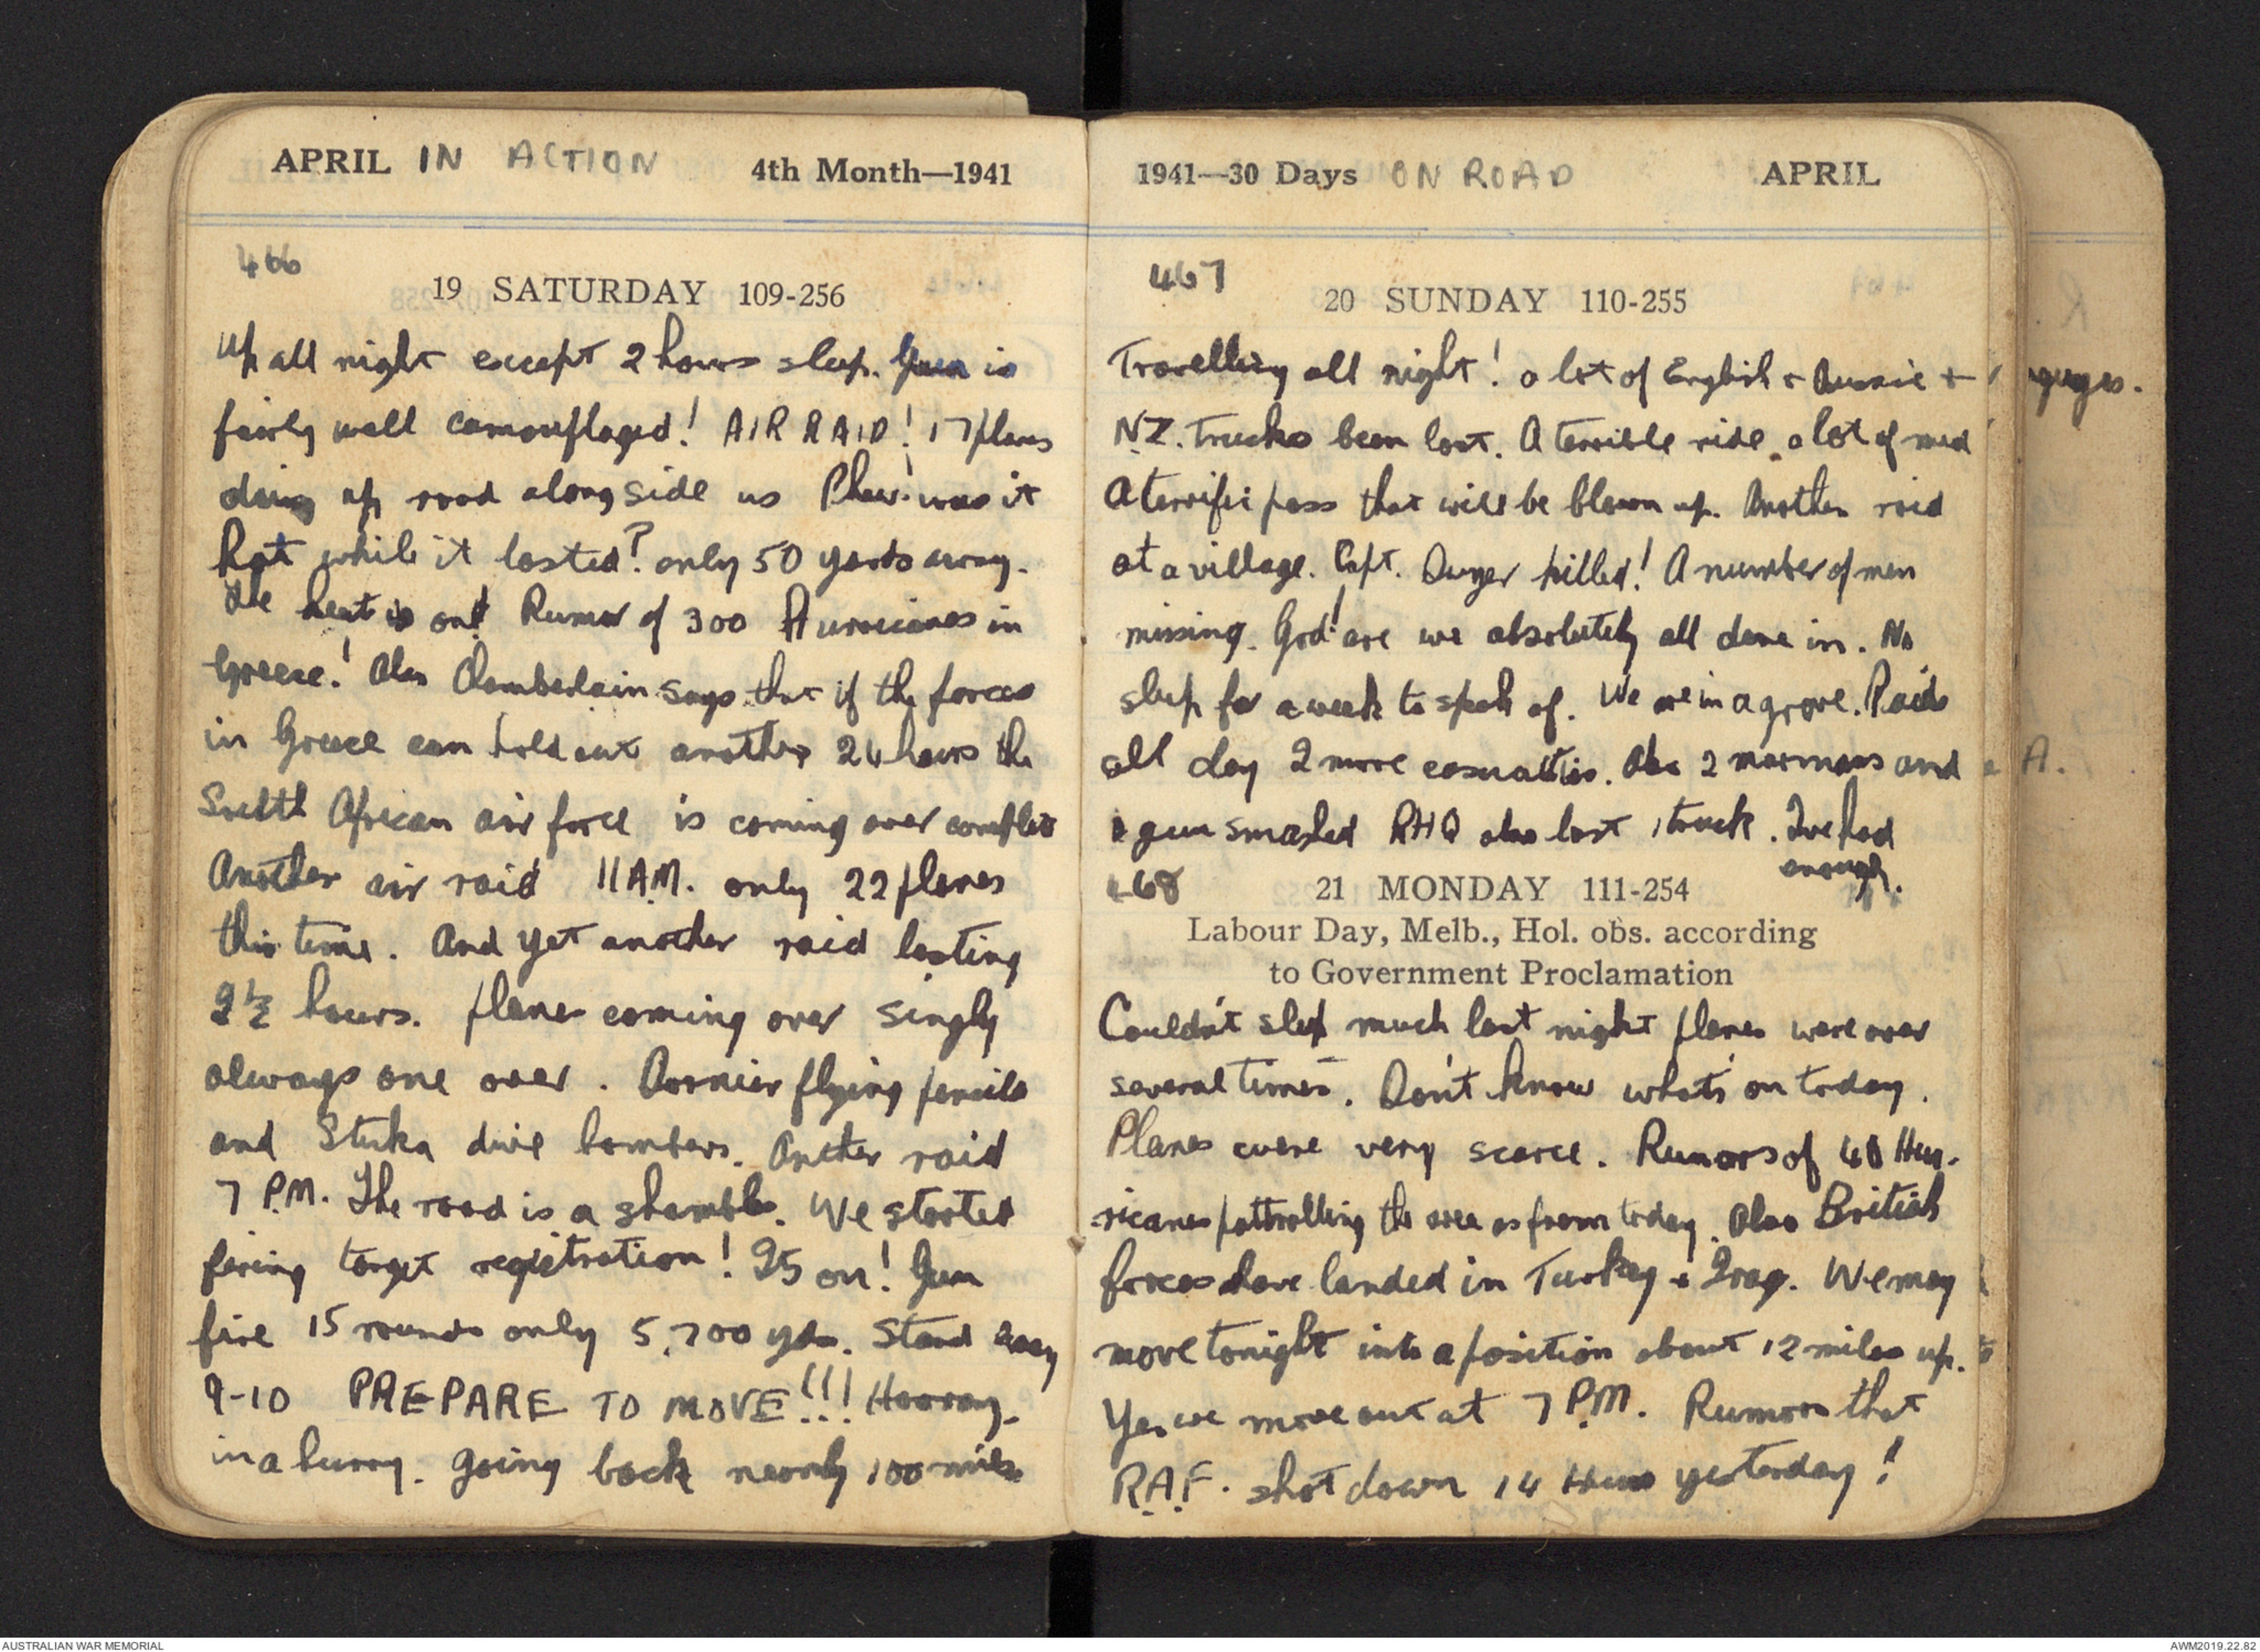 APRIL IN ACTION 4th Month—1941
466
19 SATURDAY 109-256
Up all night except 2 hours sleep. Gun is
fairly well camouflaged! AIR RAID! 17 planes
doing up road alongside us Phew! was it
Hot while it lasted? only 50 yards away.
The heat is on! Rumor of 300 Hurricanes in
Greece! Also Chamberlain says that if the forces
in Greece can hold out another 24 hours the
South African air force is coming over complete
Another air raid 11 A.M. only 22 planes
this time. And yet another raid lasting
2½ hours. planes coming over singly
always one over. Dornier flying pencils
and Stuka dive bombers. Another raid
7 P.M. The road is a shambles. We started
firing target registration! It's on! Gun
fire 15 rounds only 5,700 yds. Stand easy
9-10 PREPARE TO MOVE!!! Hooray.
in a hurry. going back nearly 100 miles
1941—30 Days ON ROAD APRIL
467
20 SUNDAY 110-255
Travelling all night! a lot of English & Aussie +
N.Z. trucks been lost. A terrible ride. a lot of mud
A terrific pass that will be blown up. Another raid
at a village. Capt. Dwyer killed! A number of men
missing. God! are we absolutely all done in. No
sleep for a week to speak of. We are in a grove. Raids
all day 2 more casualties. Also 2 marmons and
gun smashed RHQ also lost 1 truck. I've had
enough.
468
21 MONDAY 111-254
Labour Day, Melb., Hol. obs. according
to Government Proclamation
Couldn't sleep much last night planes were over
several times. Don't know what's on today.
Planes were very scarce. Rumors of 40 Hur-
ricanes pattrolling the area as from today. Also British
forces have landed in Turkey & Iraq. We may
move tonight into a position about 12 miles up.
Yes we move out at 7 P.M. Rumors that
R.A.F. shot down 14 Huns yesterday!
A.
AUSTRALIAN WAR MEMORIAL
AWM2019.22.82